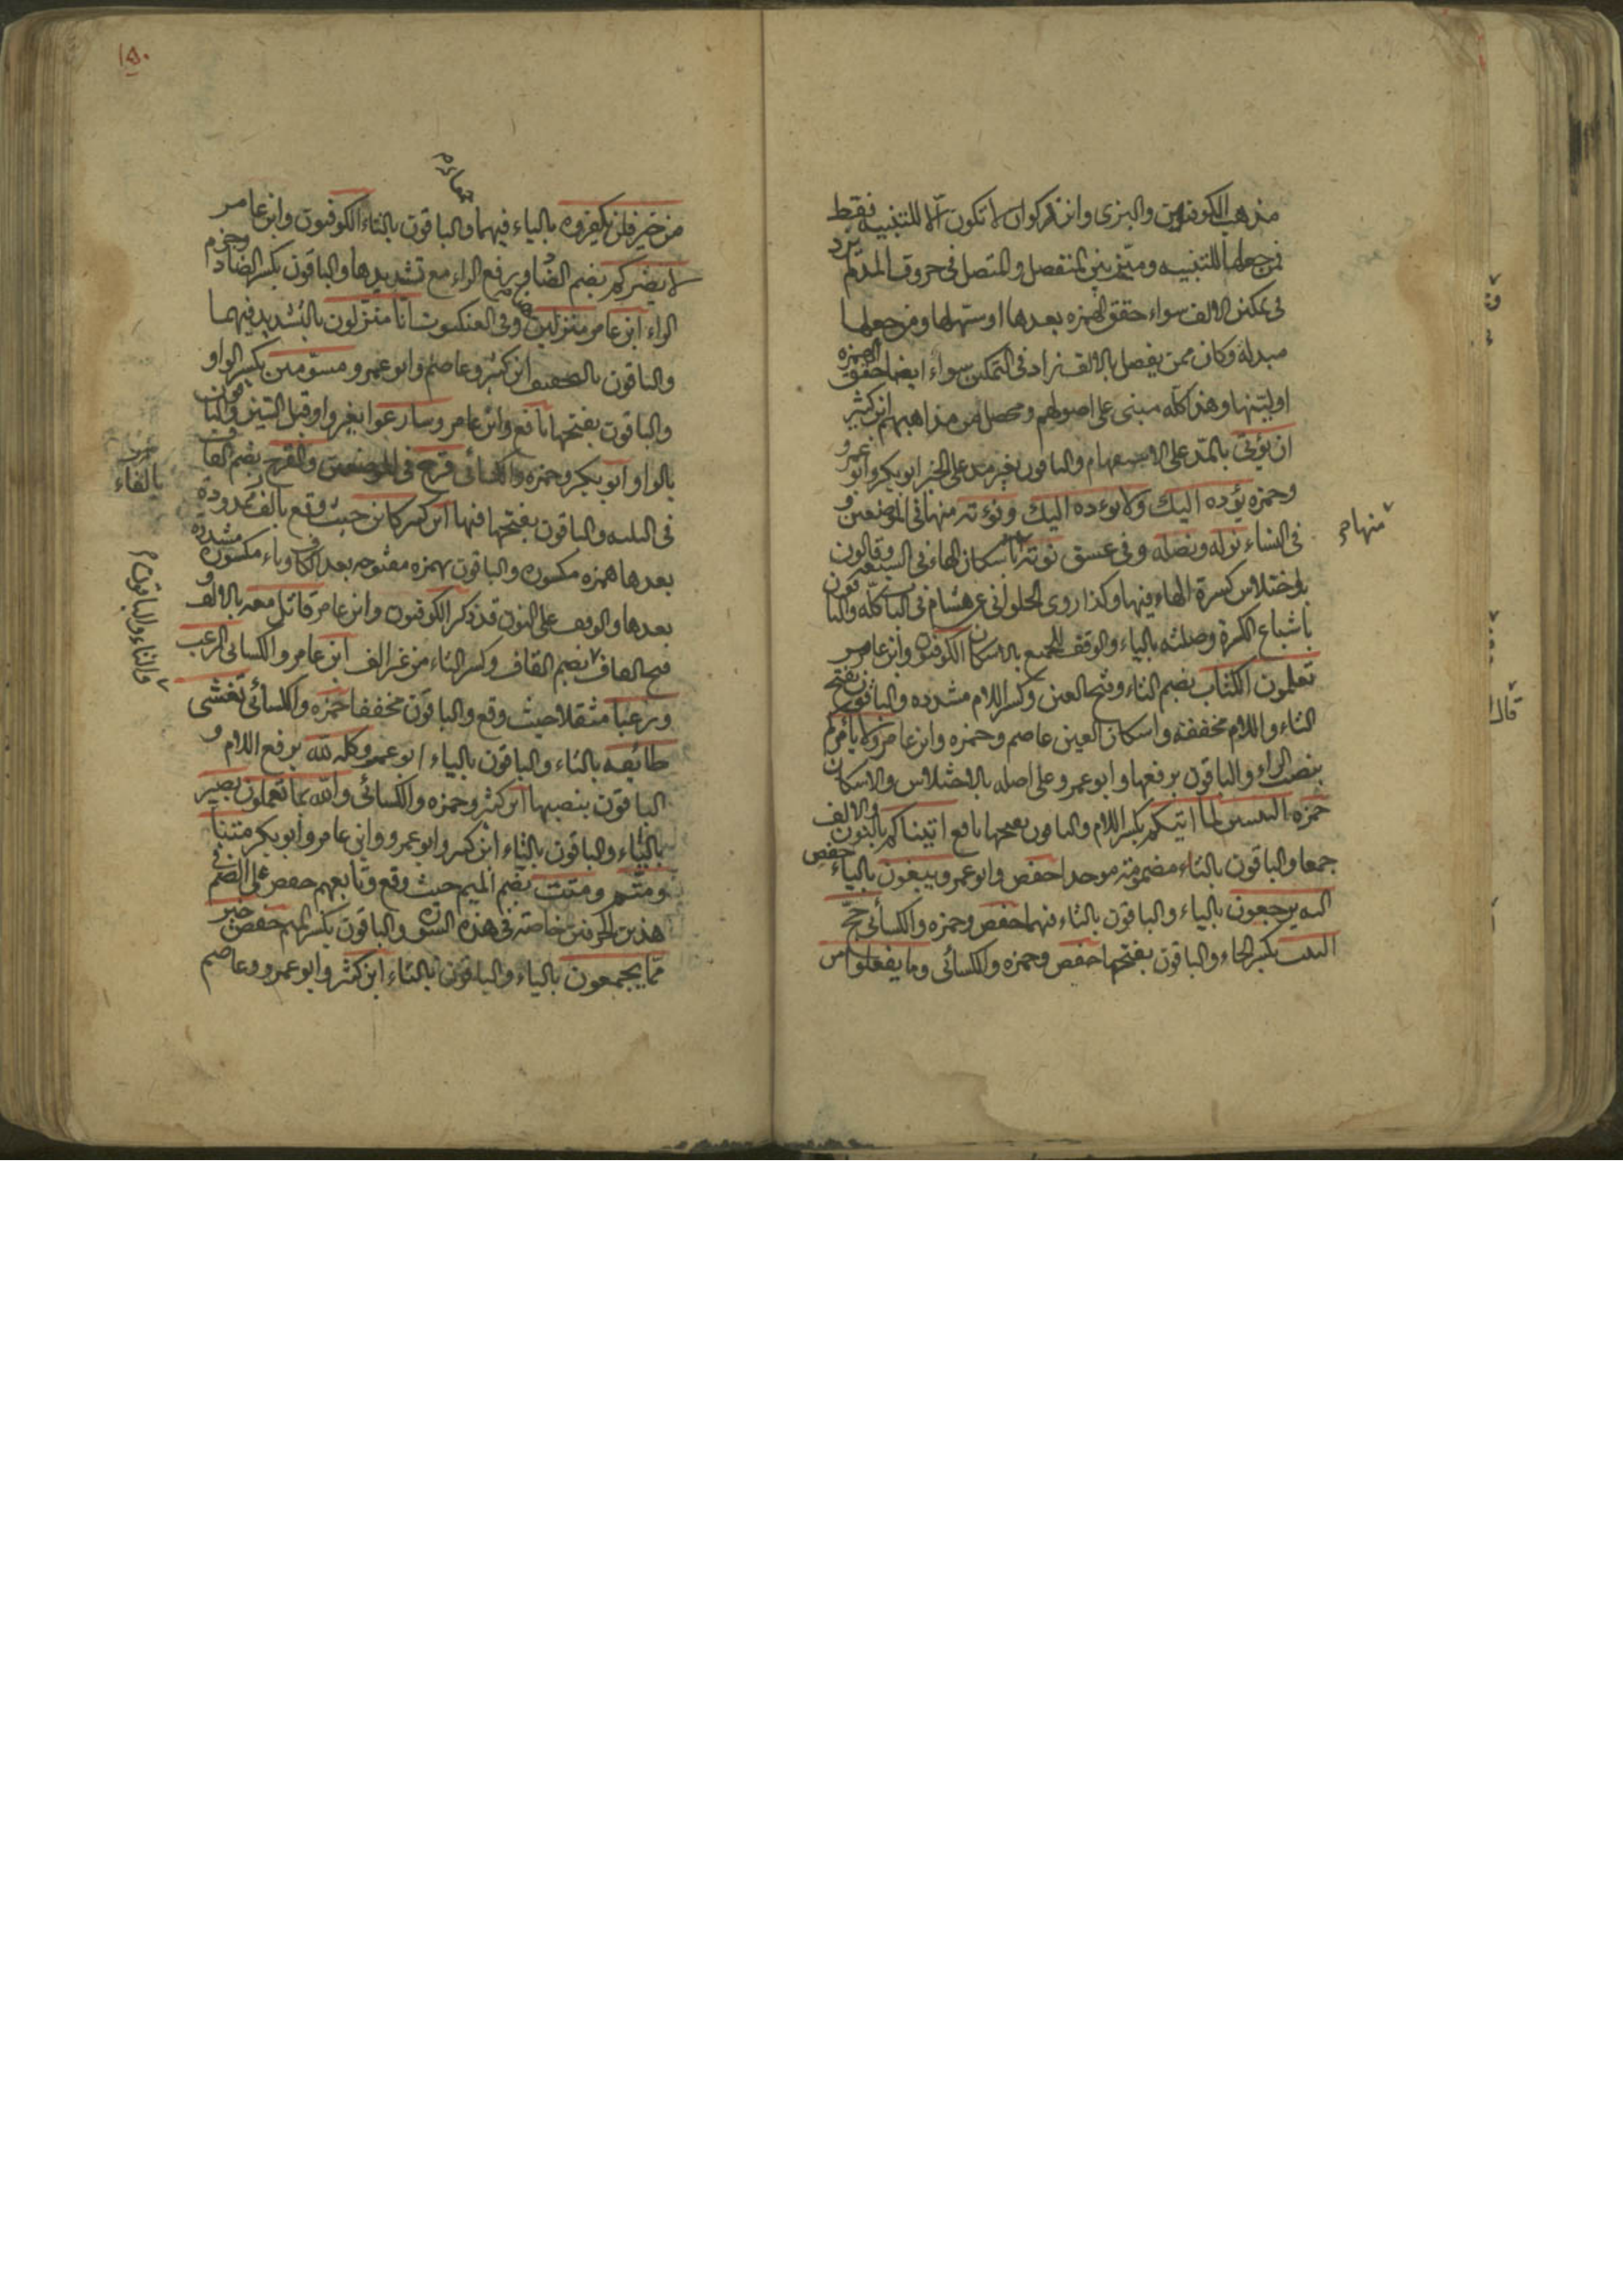 مذهب الكوفيين والبزى وابن ذكوان لا تكون الا للتنبيه فقط
فمن جعلها للتنبيه وميز بين المنفصل والمتصل فى حروف المد لم يزد
فى تمكين الالف سواء حقق الهمزه بعدها او سهلها ومن جعلها
مبدلة وكان ممن يفصل بالالف زاد فى التمكين سواء ايضا حقق الهمزه
او لينها وهذا كله مبنى على اصولهم ومحصل من مذاهبهم ابن كثير
ان يؤتى بالمد على الاستفهام والباقون بغير مد على الخبر ابو بكر وابو عمرو
وحمزه يؤده اليك ولا يؤده اليك ونؤته منها فى الموضعين و
فى النساء نوله ونصله وفى عسق نؤته باسكان الهاء فى السبعه وقالون
باختلاس كسرة الهاء فيها وكذا روى الحلوانى عن هشام فى الباب كله والباقون
باشباع الكسرة وصلته بالياء والوقف للجميع بالاسكان الكوفيون وابن عامر
تعلمون الكتاب بضم التاء وفتح العين وكسر اللام مشدده والباقون بفتح
التاء واللام مخففة واسكان العين عاصم وحمزه وابن عامر ولا يأمركم
بنصب الراء والباقون برفعها وابو عمرو على اصله بالاختلاس والاسكان
حمزه النبيين لما اتيتكم بكسر اللام والباقون بفتحها نافع اتيناكم بالنون والالف
جمعا والباقون بالتاء مضمومة موحدا حفص وابو عمرو يبغون بالياء حفص
اليه يرجعون بالياء والباقون بالتاء فيهما حفص وحمزه والكسائى حج
البيت بكسر الحاء والباقون بفتحها حفص وحمزه والكسائى وما يفعلوا من
منها
١٥٠
من خير فلن يكفروه بالياء فيهما والباقون بالتاء الكوفيون وابن عامر
لا يضركم بضم الضاد ورفع الراء مع تشديدها والباقون بكسر الضاد وجزم
الراء ابن عامر منزلين وفى العنكبوت انا منزلون بالتشديد فيهما
والباقون بالتخفيف ابن كثير وعاصم وابو عمرو مسومين بكسر الواو
والباقون بفتحها نافع وابن عامر وسارعوا بغير واو قبل السين والباقون
بالواو ابو بكر وحمزه والكسائى قرح فى الموضعين والقرح بضم القاف
فى الثلثه والباقون بفتحها فيها ابن كثير كاين حيث وقع بالف ممدودة
بعدها همزه مكسوره والباقون بهمزه مفتوحه بعد الكاف وياء مكسوره مشدده
بعدها والوقف على النون قد ذكر الكوفيون وابن عامر قاتل معه بالالف و
فتح القاف بضم القاف وكسر التاء من غير الف ابن عامر والكسائى الرعب
ورعبا مثقلا حيث وقع والباقون مخففا حمزه والكسائى تغشى
طائفه بالتاء والباقون بالياء ابو عمرو كله لله برفع اللام و
الباقون بنصبها ابن كثير وحمزه والكسائى والله بما تعملون بصير
بالياء والباقون بالتاء ابن كثير وابو عمرو وابن عامر وابو بكر متنا
ومتم ومت بضم الميم حيث وقع وتابعهم حفص على الضم فى
هذين الحرفين خاصة فى هذه السورة والباقون بكسر الميم حفص خير
مما يجمعون بالياء والباقون بالتاء ابن كثير وابو عمرو وعاصم
بالفاء
والتاء والباقون